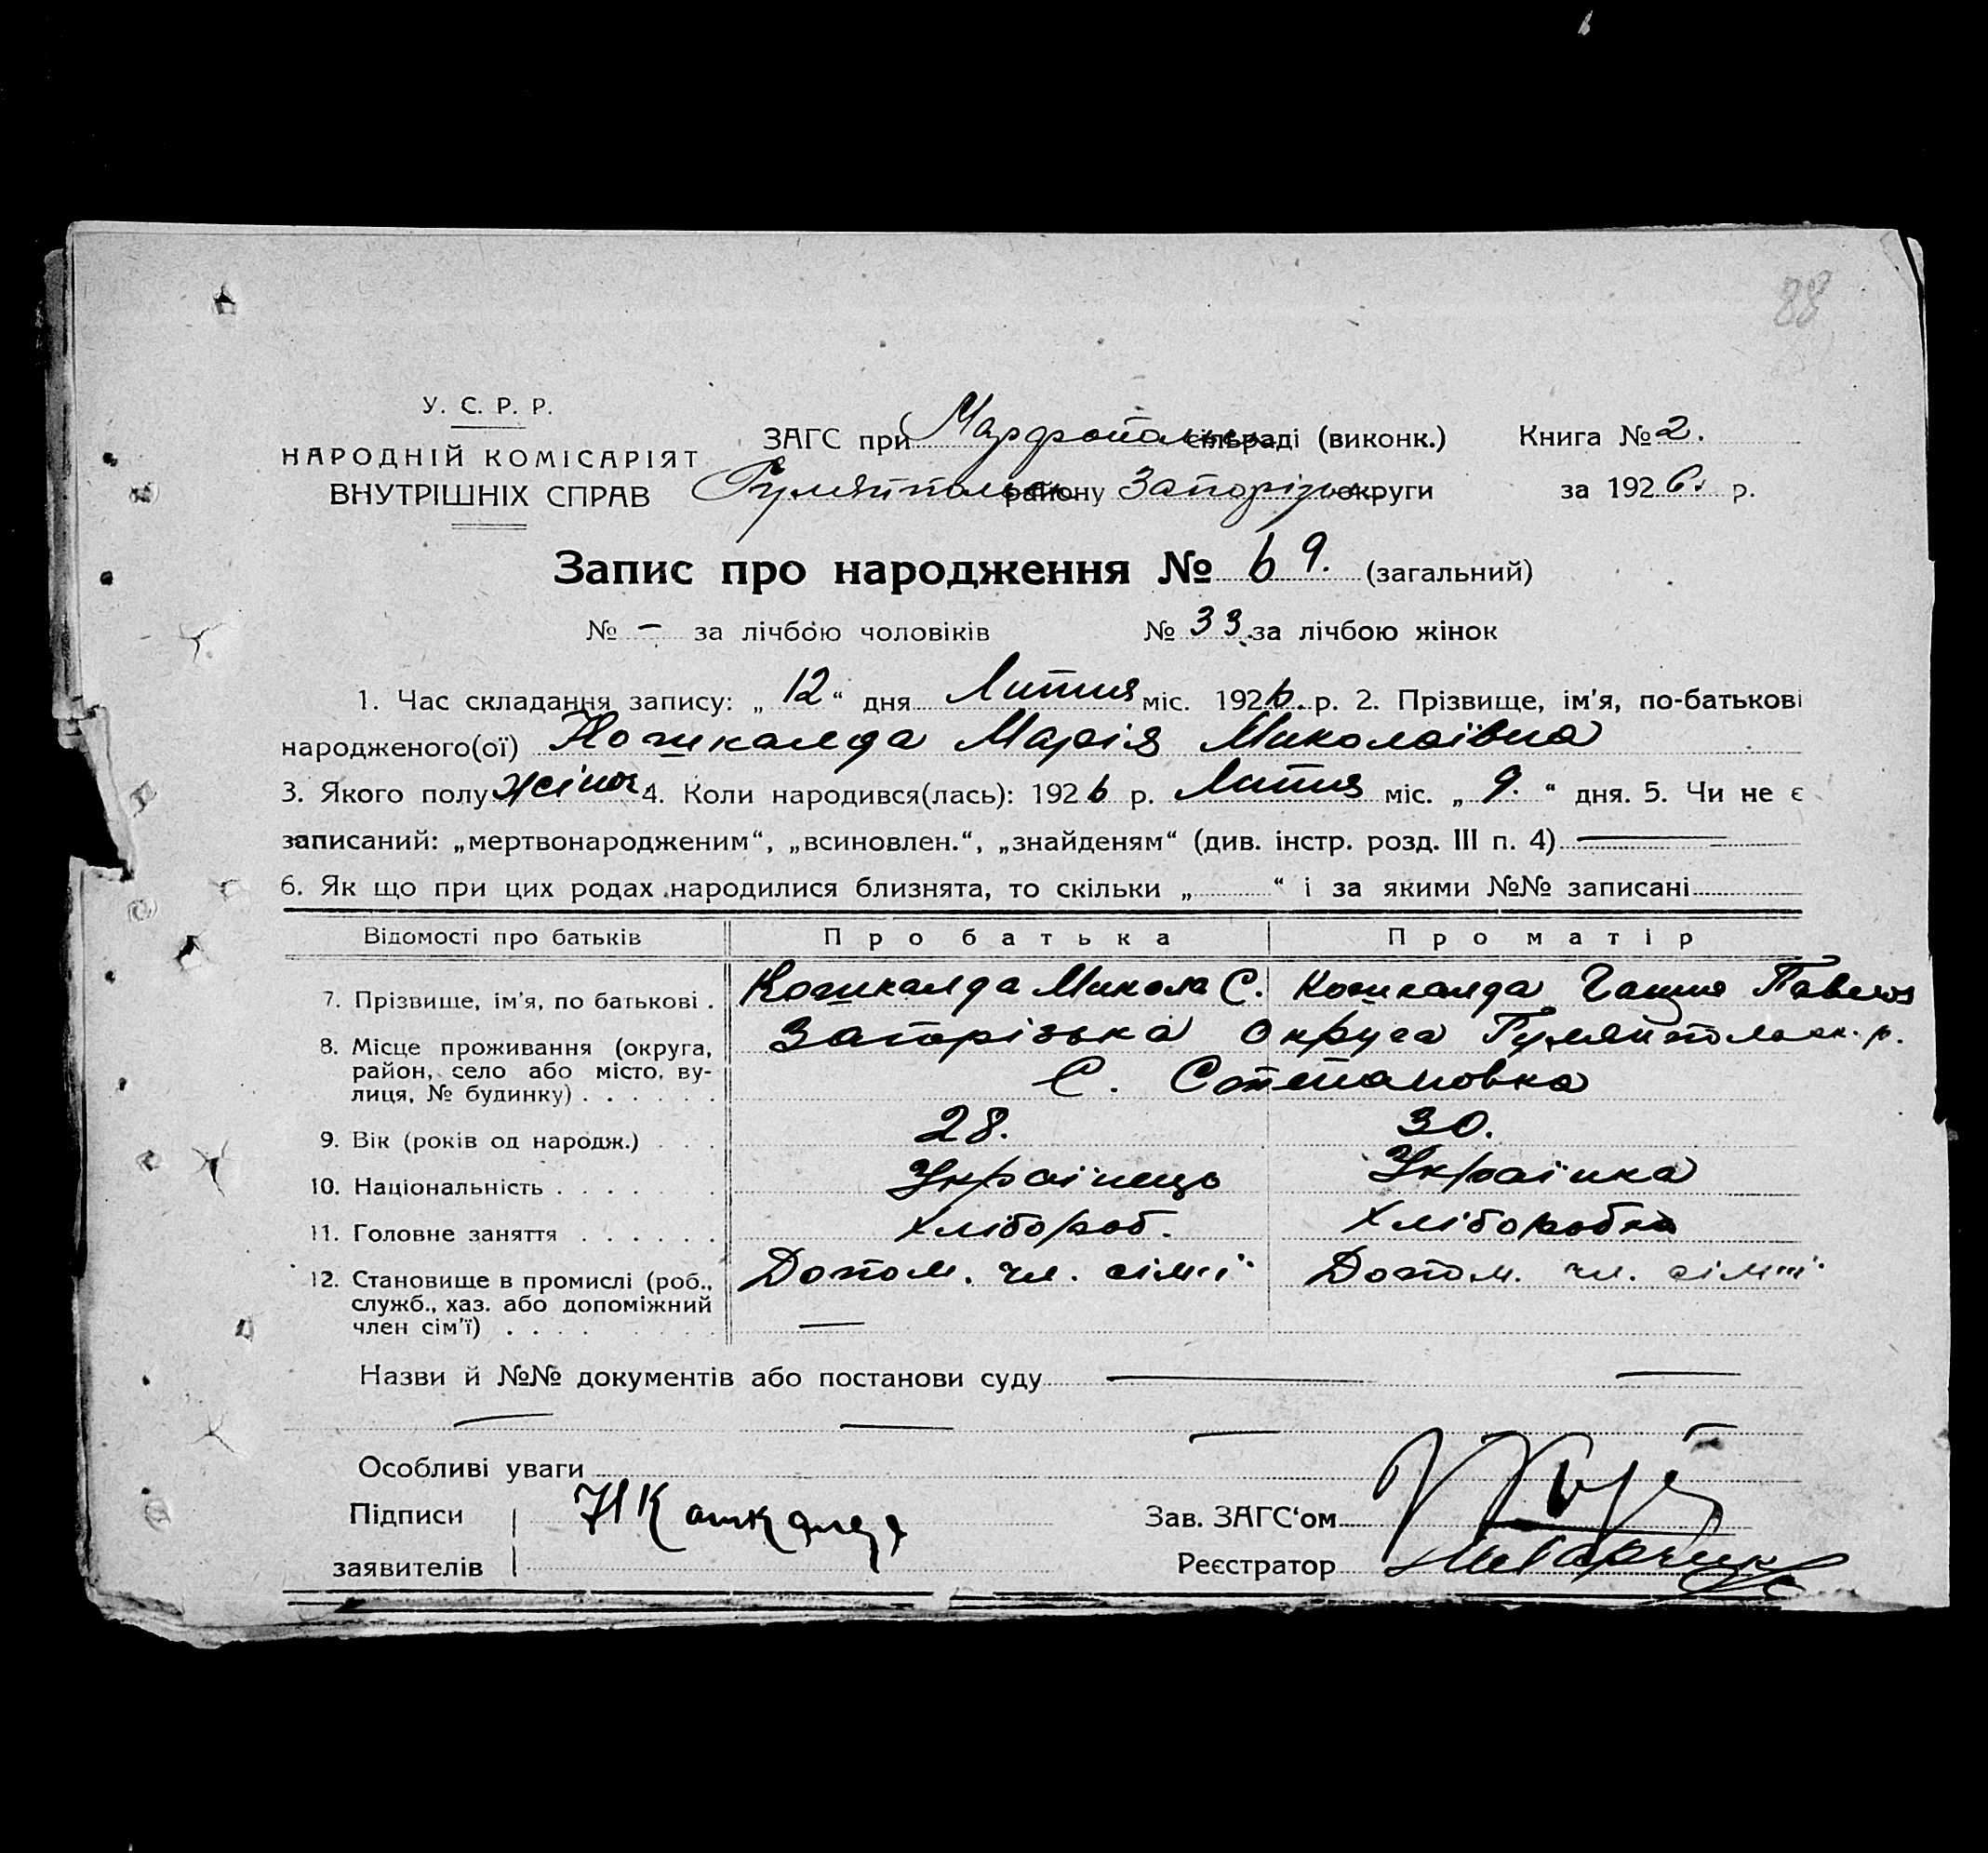 88
У. С. Р. Р.
НАРОДНІЙ КОМІСАРІЯТ
ВНУТРІШНІХ СПРАВ
ЗАГС при Марфопольск сільраді (виконк.) Книга № 2.
Гуляйпольск району Запорізьк округи за 1926. р.
Запис про народження № 69. (загальний)
№ — за лічбою чоловіків № 33. за лічбою жінок
1. Час складання запису: „ 12 “ дня Липня міс. 1926. р. 2. Прізвище, ім'я, по-батькові
народженого(ої) Кошкалда Марія Миколаївна
3. Якого полу жіноч 4. Коли народився(лась): 1926 р. Липня міс. „ 9. “ дня. 5. Чи не є
записаний: „мертвонародженим“, „всиновлен.“, „знайденям“ (див. інстр. розд. III п. 4) —
6. Як що при цих родах народилися близнята, то скільки „ “ і за якими №№ записані
Відомості про батьків Про батька Про матір
7. Прізвище, ім'я, по батькові . Кошкалда Микола С. Кошкалда Ганна Павлов
8. Місце проживання (округа, район, село або місто, ву- Запорізька округа Гуляйпольск. р.
лиця, № будинку) . . . . . . С. Степановка
9. Вік (років од народж.) . . . 28. 30.
10. Національність . . . . . . Українець Українка
11. Головне заняття . . . . . . Хлібороб. Хліборобка
12. Становище в промислі (роб., Допом. чл. сімї. Допом. чл. сімї.
служб., хаз. або допоміжний
член сім'ї) . . . . —
Назви й №№ документів або постанови суду — —
— — — —
Особливі уваги
Підписи Н Кошкалда Зав. ЗАГС‘ом
заявителів Реєстратор